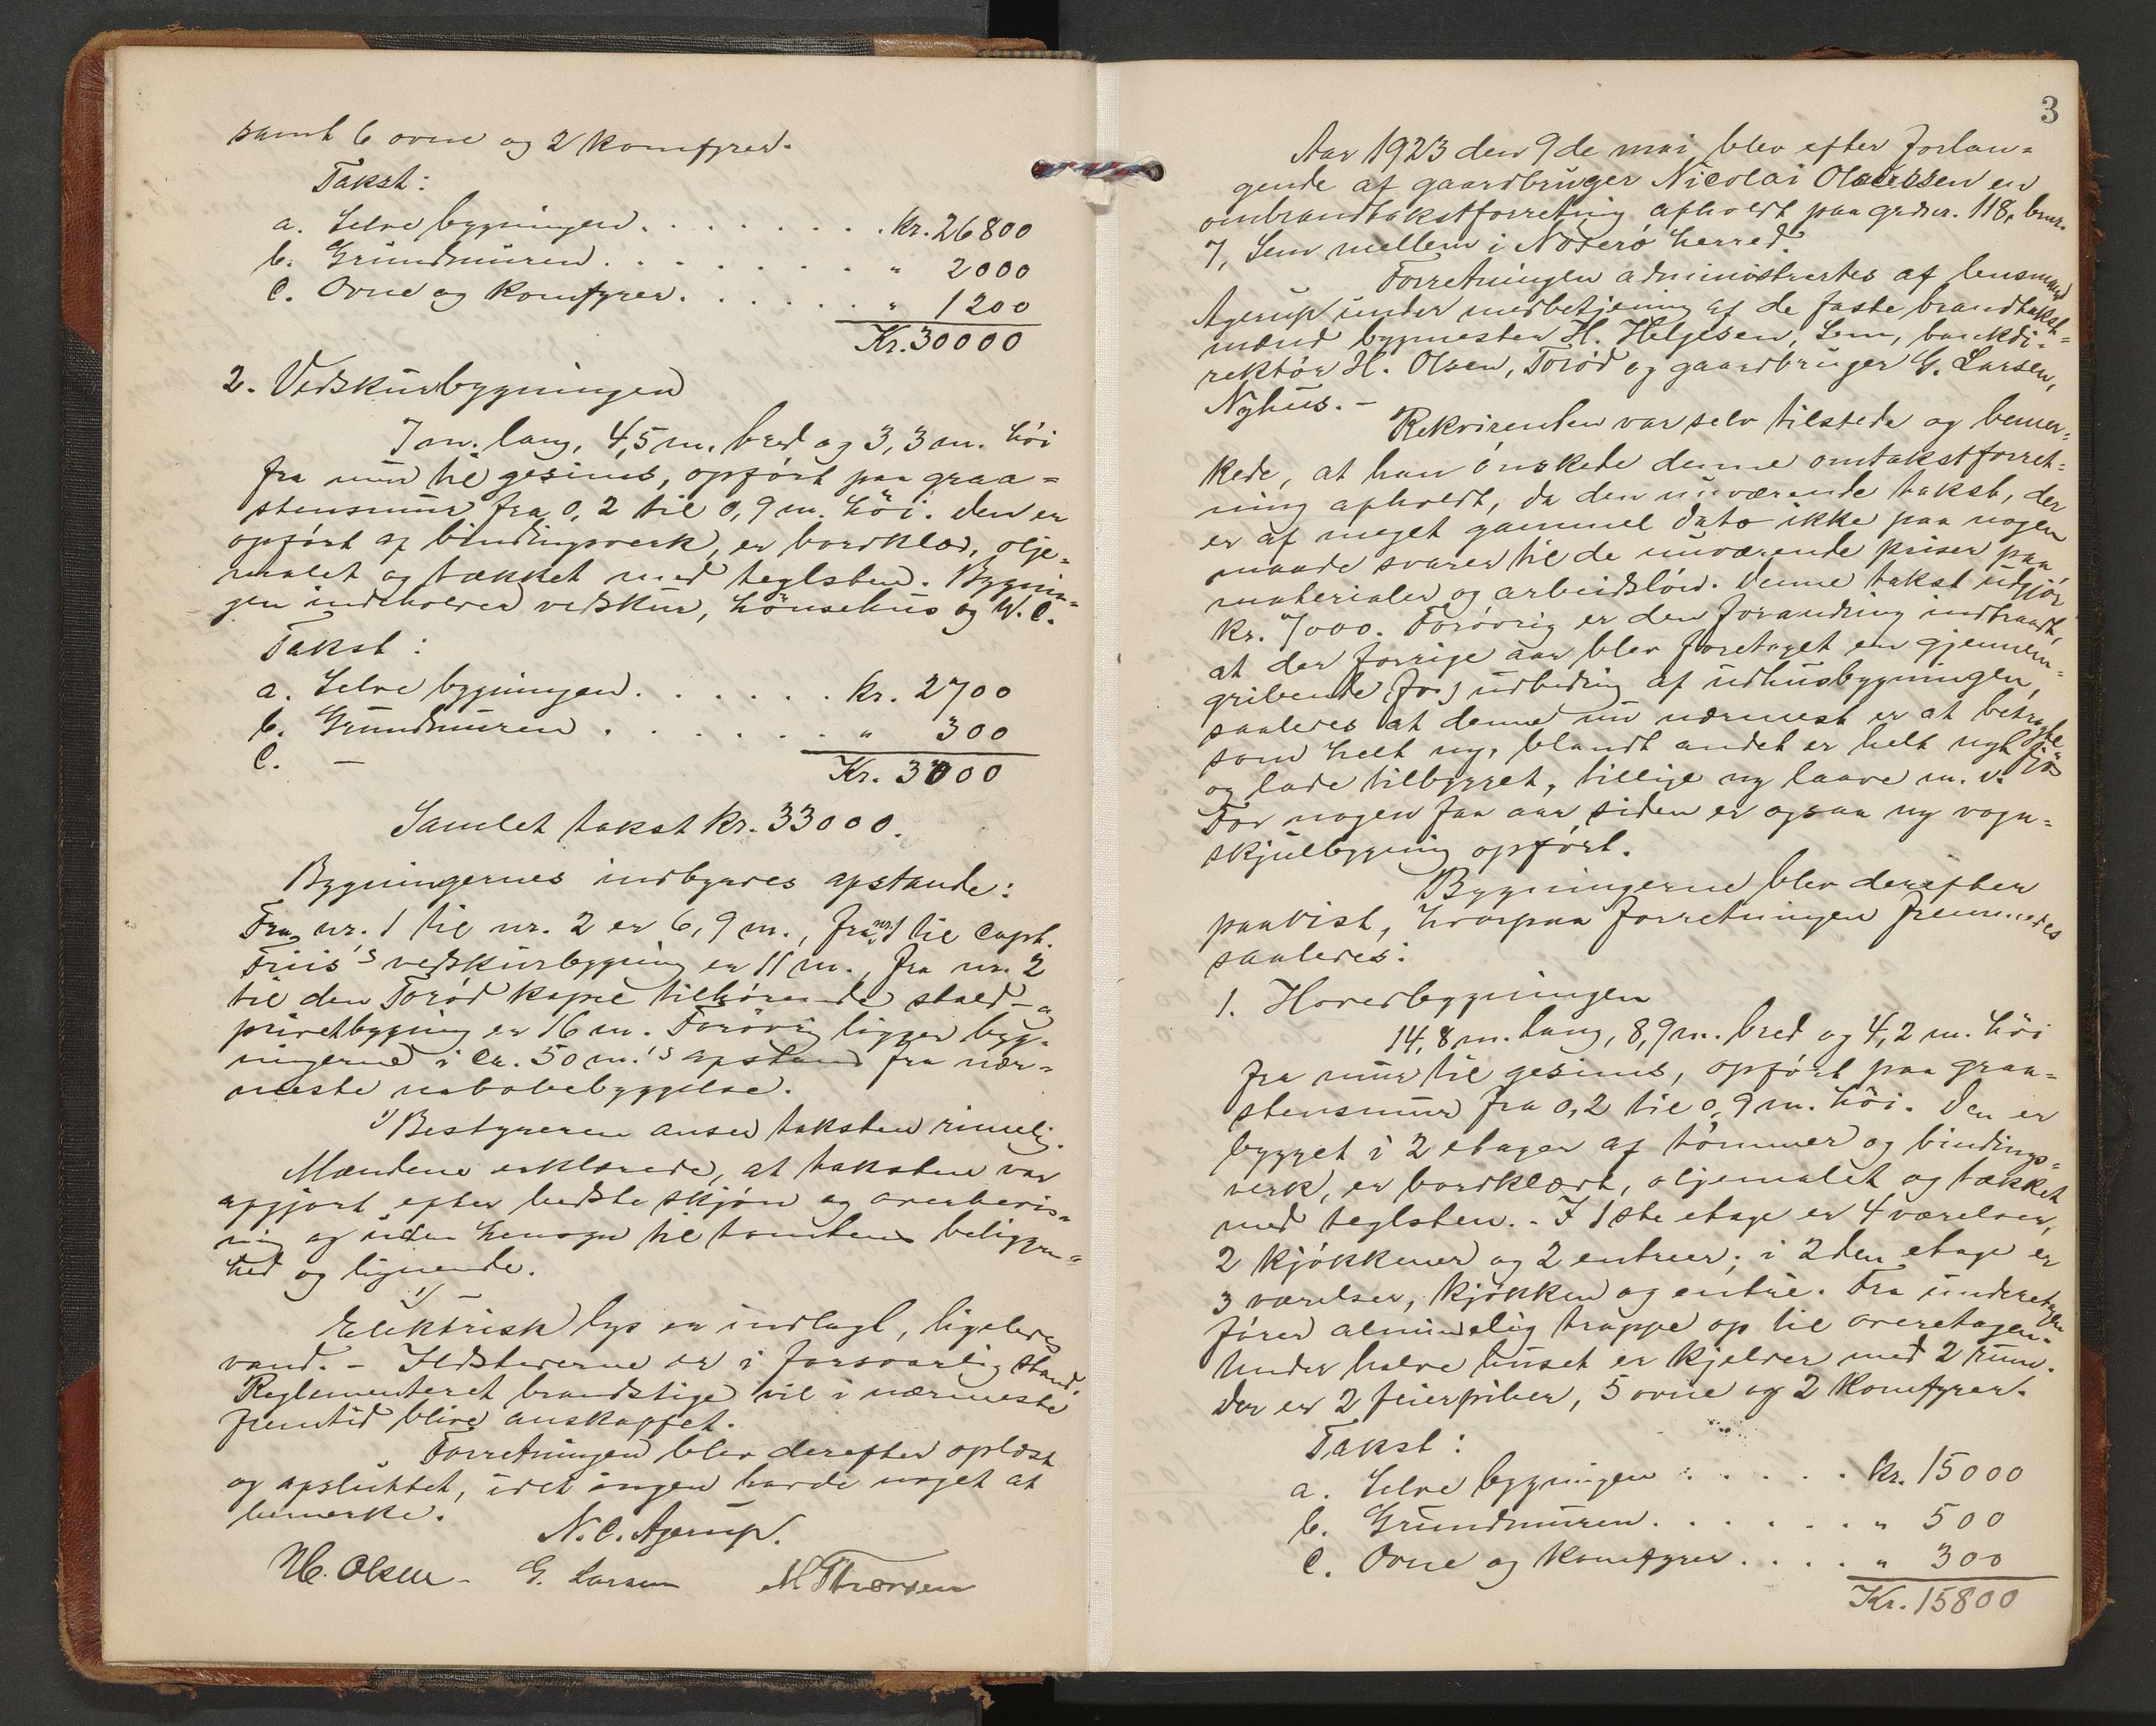 samt 6 ovne og 2 komfyrer.
Takst:
a. Selve bygningen. . . . . . . . kr. 26800
b. Grundmuren. . . . . . . . . " 2000
c. Ovne og komfyrer. . . . . . " 1200
Kr. 30000
2. Vedskurbygningen
7 m. lang, 4,5 m. bred og 3,3 m. høi
fra mur til gesims, opført paa graa=
stensmur fra 0,2 til 0,9 m. høi. Den er
opført af bindingsverk, er bordklæd, olje=
malet og tækket med teglsten. Bygnin=
gen indeholder vedskur, hønsehus og W.C.
Takst:
a. Selve bygningen. . . . . . . kr. 2700
b. Grundmuren . . . . . . . " 300
c. —
Kr. 3000
Samlet takst kr. 33000.
Bygningernes indbyrdes afstande:
Fra nr. 1 til nr. 2 er 6,9 m., fra nr. 1 til Capt.
Friis's vedskurbygning er 11 m., fra nr. 2
til den Torød kapel tilhørende stald- og
privetbygning er 16 m. Forøvrig ligger byg=
ningerne i ca. 50 m.'s afstand fra nær=
meste nabobebyggelse.
1) Bestyreren anser taksten rimelig.
Mændene erklærede, at taksten var
afgjort efter bedste skjøn og overbevis=
ning og uden hensyn til tomtens beliggen=
hed og lignende.
1)
Elektrisk lys er indlagt, ligeledes
vand. - Ildstederne er i forsvarlig stand.
Reglementeret brandstige vil i nærmeste
fremtid blive anskaffet.
Forretningen blev derefter oplæst
og afsluttet, idet ingen havde noget at
bemerke.
N. C. Agerup.
H. Olsen - G. Larsen M Thorsen
3
Aar 1923 den 9de mai blev efter forlan=
gende af gaardbruger Nicolai Olaussen en
ombrandtakstforretning afholdt paa grdsnr. 118, brnr.
7, Sem mellem i Nøterø herred.
Forretningen administrertes af lensmand
Agerup under medbetjening af de faste brandtakst=
mænd bygmester H. Helgesen, Sem, bankdi=
rektør H. Olsen, Torød og gaardbruger G. Larsen,
Nyhus. -
Rekvirenten var selv tilstede og bemer=
kede, at han ønskede denne omtakstforret=
ning afholdt, da den nuværende takst, der
er af meget gammel dato ikke paa nogen
maade svarer til de nuværende priser paa
materialer og arbeidsløn. Denne takst udgjør
kr. 7000. Forøvrig er den forandring indtraadt,
at der forrige aar blev foretaget en gjennem=
gribende forudbedring af udhusbygningen,
saaledes at denne nu nærmest er at betragte
som helt ny, blandt andet er helt nyt fjøs
og lade tilbygget, tillige ny laave m. v.
For nogen faa aar siden er ogsaa ny vogn=
skjulbygning opført.
Bygningerne blev derefter
paavist, hvorpaa forretningen fremmedes
saaledes:
1. Hovedbygningen
14,8 m. lang, 8,9 m. bred og 4,2 m. høi
fra mur til gesims, opført paa graa=
stensmur fra 0,2 til 0,9 m. høi. Den er
bygget i 2 etager af tømmer og bindings=
verk, er bordklædt, oljemalet og tækket
med teglsten. - I 1ste etage er 4 værelser,
2 kjøkkener og 2 entreer; i 2den etage er
3 værelser, kjøkken og entré. Fra underetagen
fører almindelig trappe op til overetagen.
Under halve huset er kjelder med 2 rum.
Der er 2 feierpiber, 5 ovne og 2 komfyrer.
Takst:
a. Selve bygningen . . . . . kr. 15000
b. Grundmuren. . . . . . . " 500
c. Ovne og komfyrer. . . . . " 300
Kr. 15800